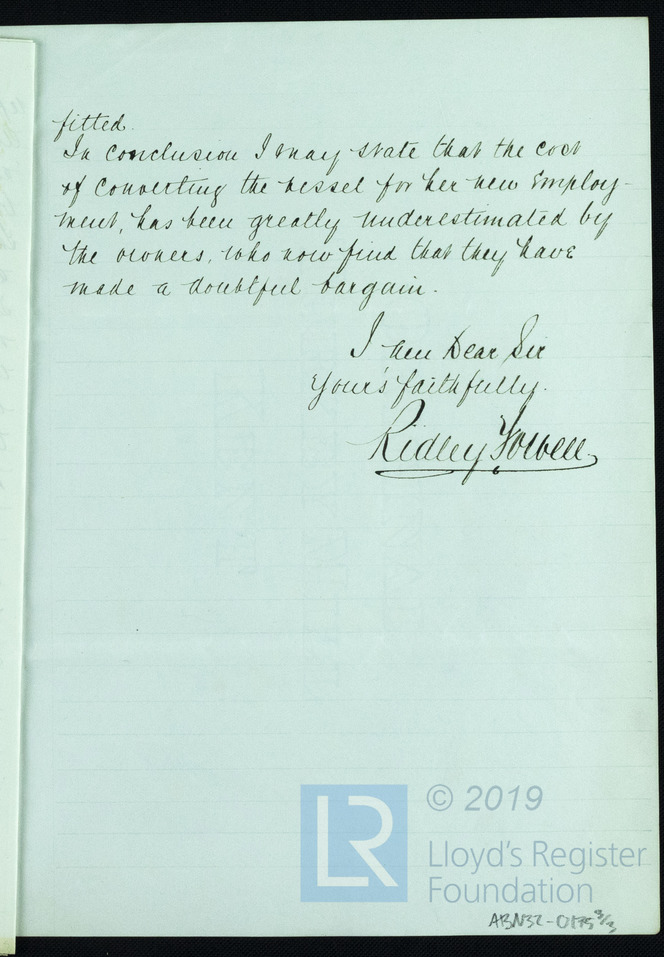 fitted.
In conclusion I may state that the cost
of converting the vessel for her new Employ-
ment, has been greatly underestimated by
the owners, who now find that they have
made a doubtful bargain.
I am Dear Sir
Your's faithfully.
Ridley
© 2019
LR
Lloyd's Register
Foundation
ABN32-0175 3/3